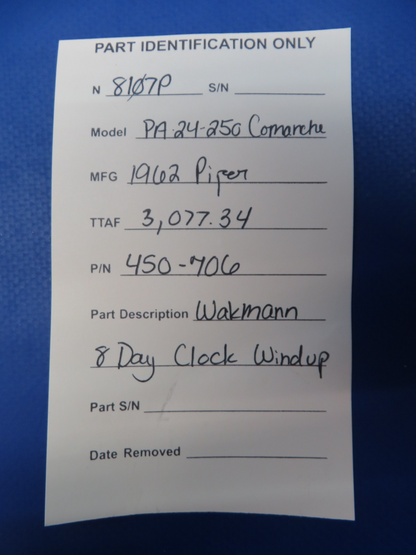 PART IDENTIFICATION ONLY
N 8107P S/N
Model PA 24-250 Comanche
MFG 1962 Piper
TTAF 3,077.34
P/N 450-706
Part Description Wakmann
8 Day Clock Windup
Part S/N
Date Removed